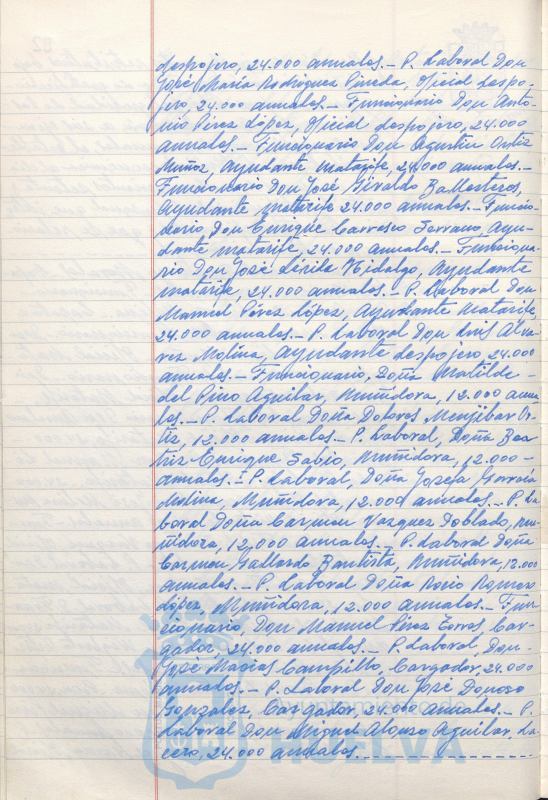 despojero, 24.000 anuales.- P. Laboral Don
José María Rodríguez Pineda, Oficial despo-
jero, 24.000 anuales.- Funcionario Don Anto-
nio Pérez López, Oficial despojero, 24.000
anuales.- Funcionario Don Agustín Ortiz
Muñoz, Ayudante matarife, 24.000 anuales.-
Funcionario Don José Giraldo Ballesteros,
Ayudante matarife 24.000 anuales.- Funcio-
nario Don Enrique Carrasco Serrano, Ayu-
dante matarife, 24.000 anuales.- Funciona-
rio Don José Lérida Hidalgo, Ayudante
matarife, 24.000 anuales.- P. Laboral Don
Manuel Pérez López, Ayudante Matarife,
24.000 anuales.- P. Laboral Don Luis Alva-
rez Molina, Ayudante despojero, 24.000
anuales.- Funcionario, Doña Matilde -
del Pino Aguilar, Muñidora, 12.000 anua-
les.- P. Laboral Doña Dolores Menjibar Or-
tiz, 12.000 anuales.- P. Laboral, Doña Bea-
triz Enrique Sabio, Muñidora, 12.000 -
anuales.- P. Laboral, Doña Josefa García
Molina, Muñidora, 12.000 anuales.- P. La-
boral Doña Carmen Vazquez Doblado, mu-
ñidora, 12,000 anuales.- P. Laboral Doña
Carmen Gallardo Bautista, Muñidora, 12.000
anuales.- P. Laboral Doña Rocio Romero
López, Muñidora, 12.000 anuales.- Fun-
cionario, Don Manuel Pérez Torres, Car-
gador, 24.000 anuales.- P. Laboral, Don-
José Macías Campillo, Cargador, 24.000
anuales.- P. Laboral Don José Donoso
Gonzalez, Cargador, 24.000 anuales.- P.
Laboral Don Miguel Alonso Aguilar, La-
cero, 24.000 anuales.
Ayuntamiento de
HUELVA